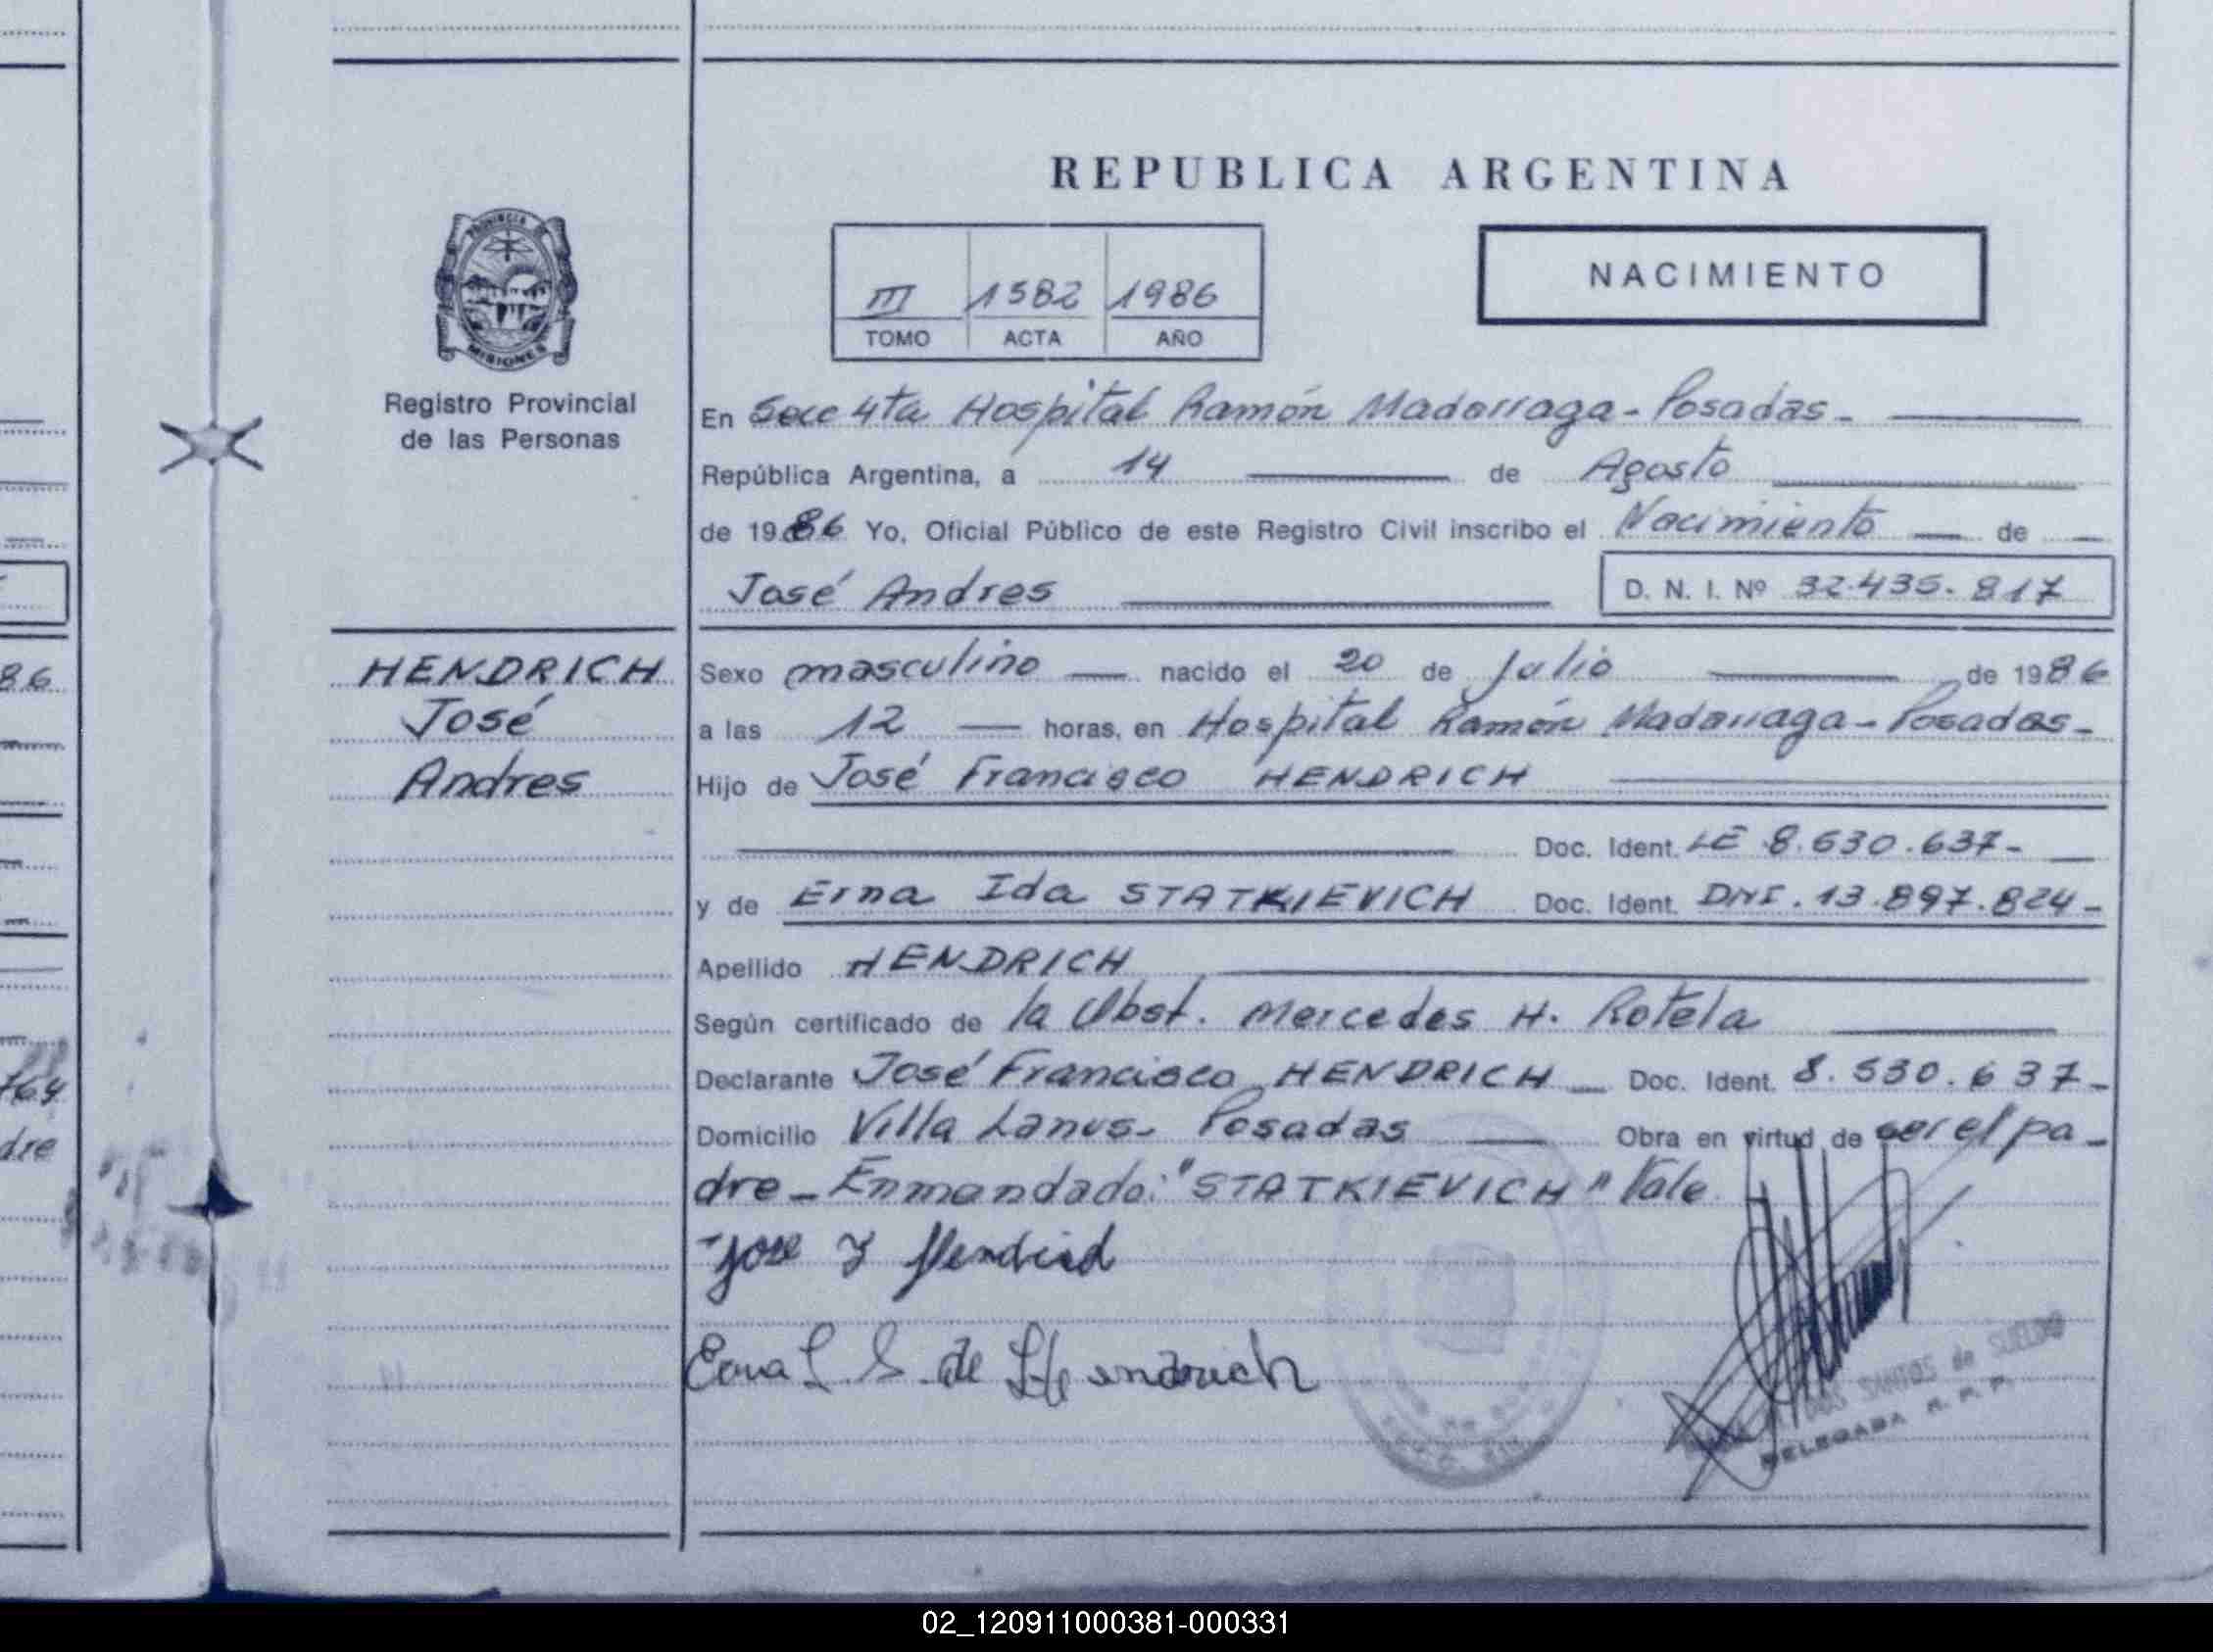 REPUBLICA ARGENTINA
III 1582 1986
TOMO ACTA AÑO
NACIMIENTO
PROVINCIA DE
MISIONES
Registro Provincial
de las Personas
En Secc 4ta Hospital Ramón Madarriaga - Posadas -
República Argentina, a 14 de Agosto
de 1986 Yo, Oficial Público de este Registro Civil inscribo el Nacimiento de
José Andres D. N. I. Nº 32.435.817
HENDRICH
José
Andres
Sexo masculino nacido el 20 de Julio de 1986
a las 12 horas, en Hospital Ramón Madariaga - Posadas -
Hijo de José Francisco HENDRICH
Doc. Ident. LE 8.630.637 -
y de Erna Ida STATKIEVICH Doc. Ident. DNI. 13.897.824 -
Apellido HENDRICH
Según certificado de la Obst. Mercedes H. Rotela
Declarante José Francisco HENDRICH Doc. Ident. 8.530.637 -
Domicilio Villa Lanus - Posadas Obra en virtud de ser el pa -
dre - Enmendado: "STATKIEVICH" Vale
Erna I. S. de Hendrich
DOS SANTOS de SUELDO
DELEGADA R. P. P.
86
764
dre
02_120911000381-000331